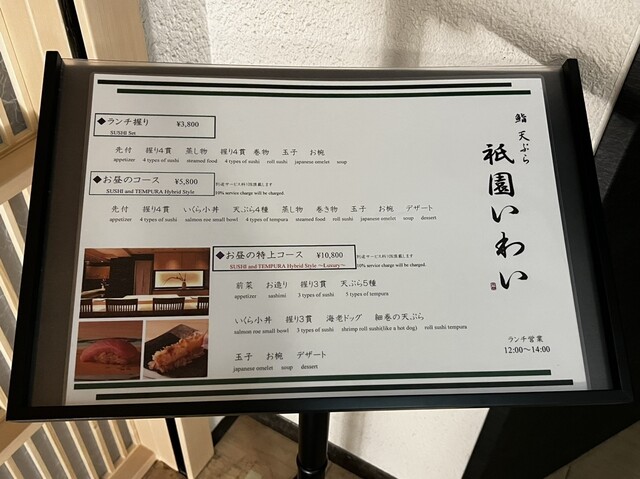 鮨 天ぷら
祇園いわい
◆ランチ握り ¥3,800
SUSHI Set
先付 握り4貫 蒸し物 握り4貫 巻物 玉子 お椀
appetizer 4 types of sushi steamed food 4 types of sushi roll sushi japanese omelet soup
◆お昼のコース ¥5,800
SUSHI and TEMPURA Hybrid Style
別途サービス料10%頂戴します
10% service charge will be charged.
先付 握り4貫 いくら小丼 天ぷら4種 蒸し物 巻き物 玉子 お椀 デザート
appetizer 4 types of sushi salmon roe small bowl 4 types of tempura steamed food roll sushi japanese omelet soup dessert
◆お昼の特上コース ¥10,800
SUSHI and TEMPURA Hybrid Style ～Luxury～
別途サービス料10%頂戴します
10% service charge will be charged.
前菜 お造り 握り3貫 天ぷら5種
appetizer sashimi 3 types of sushi 5 types of tempura
いくら小丼 握り3貫 海老ドッグ 細巻の天ぷら
salmon roe small bowl 3 types of sushi shrimp roll sushi(like a hot dog) roll sushi tempura
玉子 お椀 デザート
japanese omelet soup dessert
ランチ営業
12:00～14:00